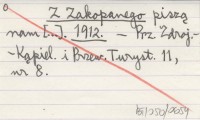 Z Zakopanego piszą
nam [...]. 1912. – Prz. Zdroj.-
-Kąpiel. i Przew. Turyst. 11,
nr 8.